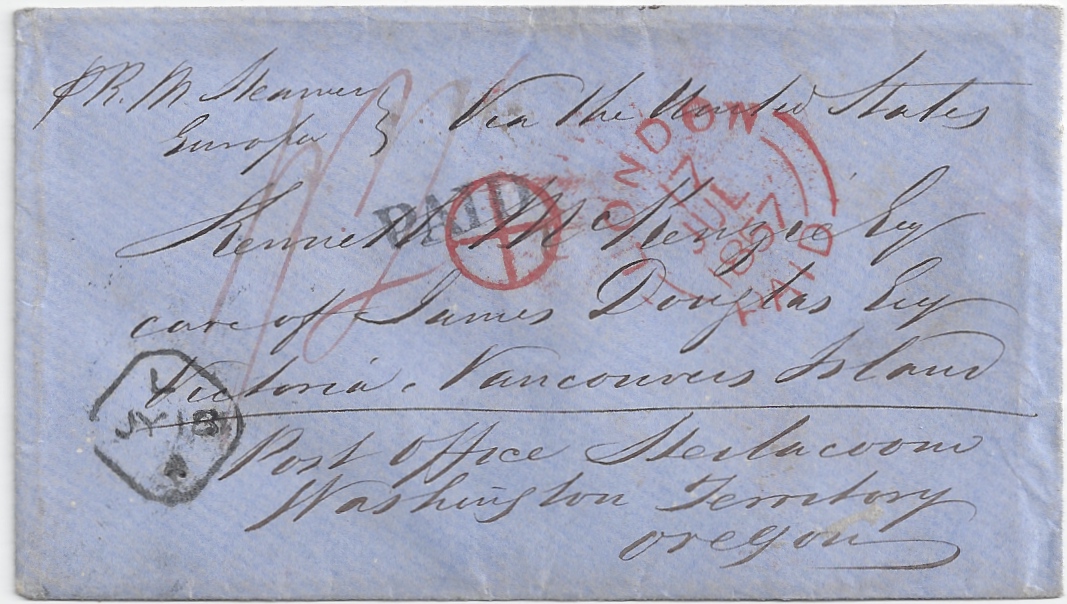 PR. M. Steamer } Via the United States
Europa
Kenneth McKenzie Esq
care of James Douglas Esq
Victoria. Vancouvers Island
Post Office Steilacoom
Washington Territory
Oregon
PAID
LONDON
7
JUL
1857
PAID
L
JY 18
1/2